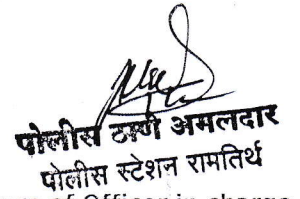 पोलीस ठाणे अमलदार
पोलीस स्टेशन रामतिर्थ
of Officer in charge